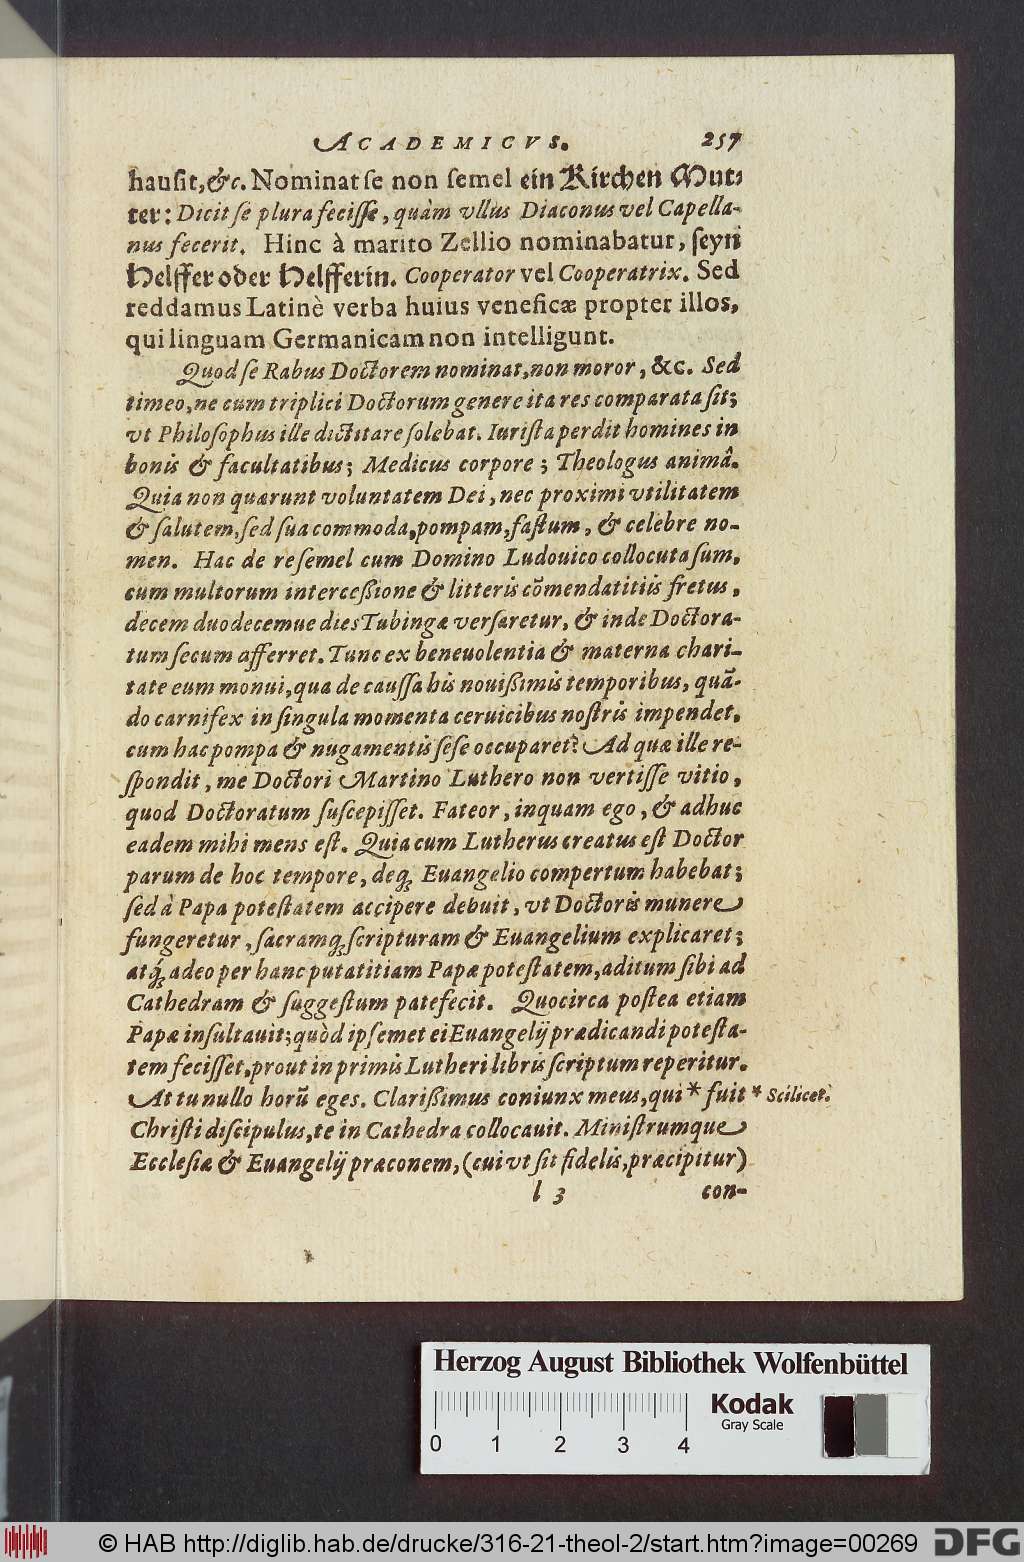 ACADEMICVS. 257
hausit, &c. Nominat se non semel ein Kirchen Mut-
ter: Dicit se plura fecisse, quàm vllus Diaconus vel Capella-
nus fecerit. Hinc à marito Zellio nominabatur, seyn
Helffer oder Helfferin. Cooperator vel Cooperatrix. Sed
reddamus Latinè verba huius veneficæ propter illos,
qui linguam Germanicam non intelligunt.
Quod se Rabus Doctorem nominat, non moror, &c. Sed
timeo, ne cum triplici Doctorum genere ita res comparata sit;
vt Philosophus ille dictitare solebat. Iurista perdit homines in
bonis & facultatibus; Medicus corpore; Theologus animâ.
Quia non quærunt voluntatem Dei, nec proximi vtilitatem
& salutem, sed sua commoda, pompam, fastum, & celebre no-
men. Hac de re semel cum Domino Ludouico collocuta sum,
cum multorum intercessione & litteris cõmendatitiis fretus,
decem duodecemue dies Tubingæ versaretur, & inde Doctora-
tum secum afferret. Tunc ex beneuolentia & materna chari-
tate eum monui, qua de caussa his nouissimis temporibus, quã-
do carnifex in singula momenta ceruicibus nostris impendet,
cum hac pompa & nugamentis sese occuparet? Ad quæ ille re-
spondit, me Doctori Martino Luthero non vertisse vitio,
quod Doctoratum suscepisset. Fateor, inquam ego, & adhuc
eadem mihi mens est. Quia cum Lutherus creatus est Doctor
parum de hoc tempore, deq; Euangelio compertum habebat;
sed à Papa potestatem accipere debuit, vt Doctoris munere
fungeretur, sacramq; scripturam & Euangelium explicaret;
atq́; adeo per hanc putatitiam Papæ potestatem, aditum sibi ad
Cathedram & suggestum patefecit. Quocirca postea etiam
Papæ insultauit; quòd ipsemet ei Euangelij prædicandi potesta-
tem fecisset, prout in primis Lutheri libris scriptum reperitur.
At tu nullo horũ eges. Clarissimus coniunx meus, qui * fuit * Scilicet.
Christi discipulus, te in Cathedra collocauit. Ministrumque
Ecclesiæ & Euangelij præconem, (cui vt sit fidelis, præcipitur)
l 3 con-
Herzog August Bibliothek Wolfenbüttel
Kodak
Gray Scale
0 1 2 3 4
© HAB http://diglib.hab.de/drucke/316-21-theol-2/start.htm?image=00269 DFG